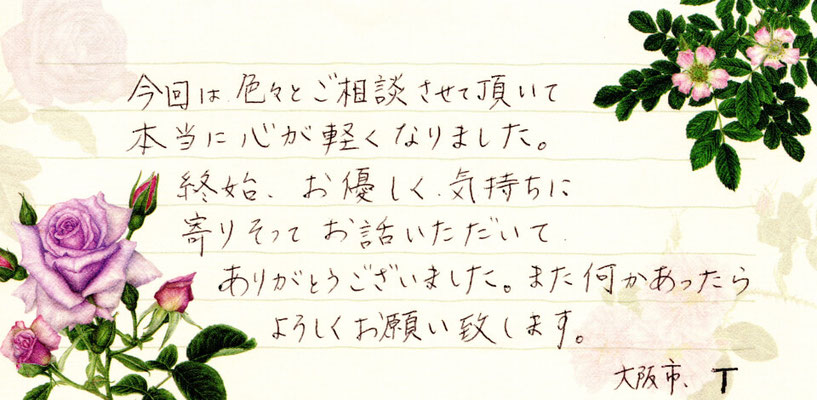 今回は色々とご相談させて頂いて
本当に心が軽くなりました。
終始、お優しく、気持ちに
寄りそってお話いただいて
ありがとうございました。また何かあったら
ようしくお願い致します。
大阪市、T